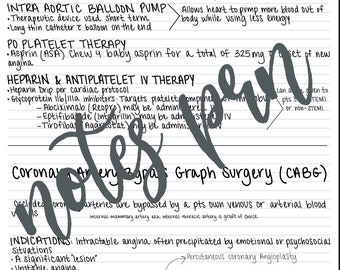 INTRA AORTIC BALLOON PUMP
Allows heart to pump more blood out of body while using less energy
• Therapeutic device used short term
• Long thin catheter c balloon on the end
PO PLATELET THERAPY
• Asprin (ASA) Chew 4 baby asprin for a total of 325mg set of new
angina
HEPARIN & ANTIPLATELET IV THERAPY
• Heparin drip per cardiac protocol
• Glycoprotein IIb/IIIa inhibitors: Targets platelet
- Abciximab (Reopro) may be administered
- Eptifibatide (Integrilin) may be administered IV
- Tirofiban (Aggrastat) may be administered IV
notes prn
Coronary Artery Bypass Graph Surgery (CABG)
coronary arteries are bypassed by a pts own venous or arterial blood
Internal mammary artery aka. internal thoracic artery is graft of choice
INDICATIONS: Intractable angina often precipitated by emotional or psychosocial
situations
• A significant "lesion"
Percutaneous coronary Angioplasty
• Unstable angina